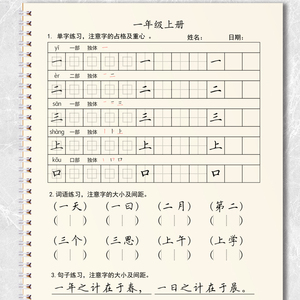 一年级上册
1. 单字练习，注意字的占格及重心。 姓名： 日期：
yī 一部 独体
一 一 一
èr 二部 独体
二 二 二
sān 一部 独体
三 三 三
shàng 一部 独体
上 上 上
kǒu 口部 独体
口 口 口
2. 词语练习，注意字的大小及间距。
（一天） （一日） （二月） （第二）
（三个） （三思） （上午） （上学）
3. 句子练习，注意字的大小及间距。
一年之计在于春， 一日之计在于晨。